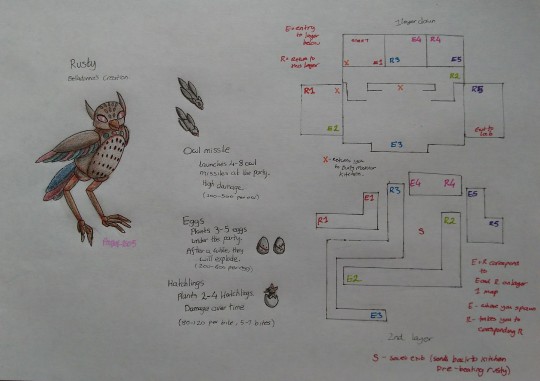 Rusty
Belladonna's Creation
Owl missile
Launches 4-8 owl
missiles at the party.
High damage
Eggs
Plants 3-5 eggs
under the party.
After a while, they
will explode.
Hatchlings
Plants 2-4 Hatchlings
Damages over time
1 layer down
E = entry
to layer
below
R = return to
this layer
START
X
E1
R3
E4
R4
E5
R2
R1
X
E2
X
R5
E3
X - Returns you
to party manor
kitchen.
E1
R3
E4
R4
E5
R1
R2
R5
S
E2
E3
E + R correspond
to
E and R on layer
1 map
E - where you spawn
R - takes you to
corresponding R
2nd layer
S - sewer exit (sends back to kitchen
pre-beating rusty)